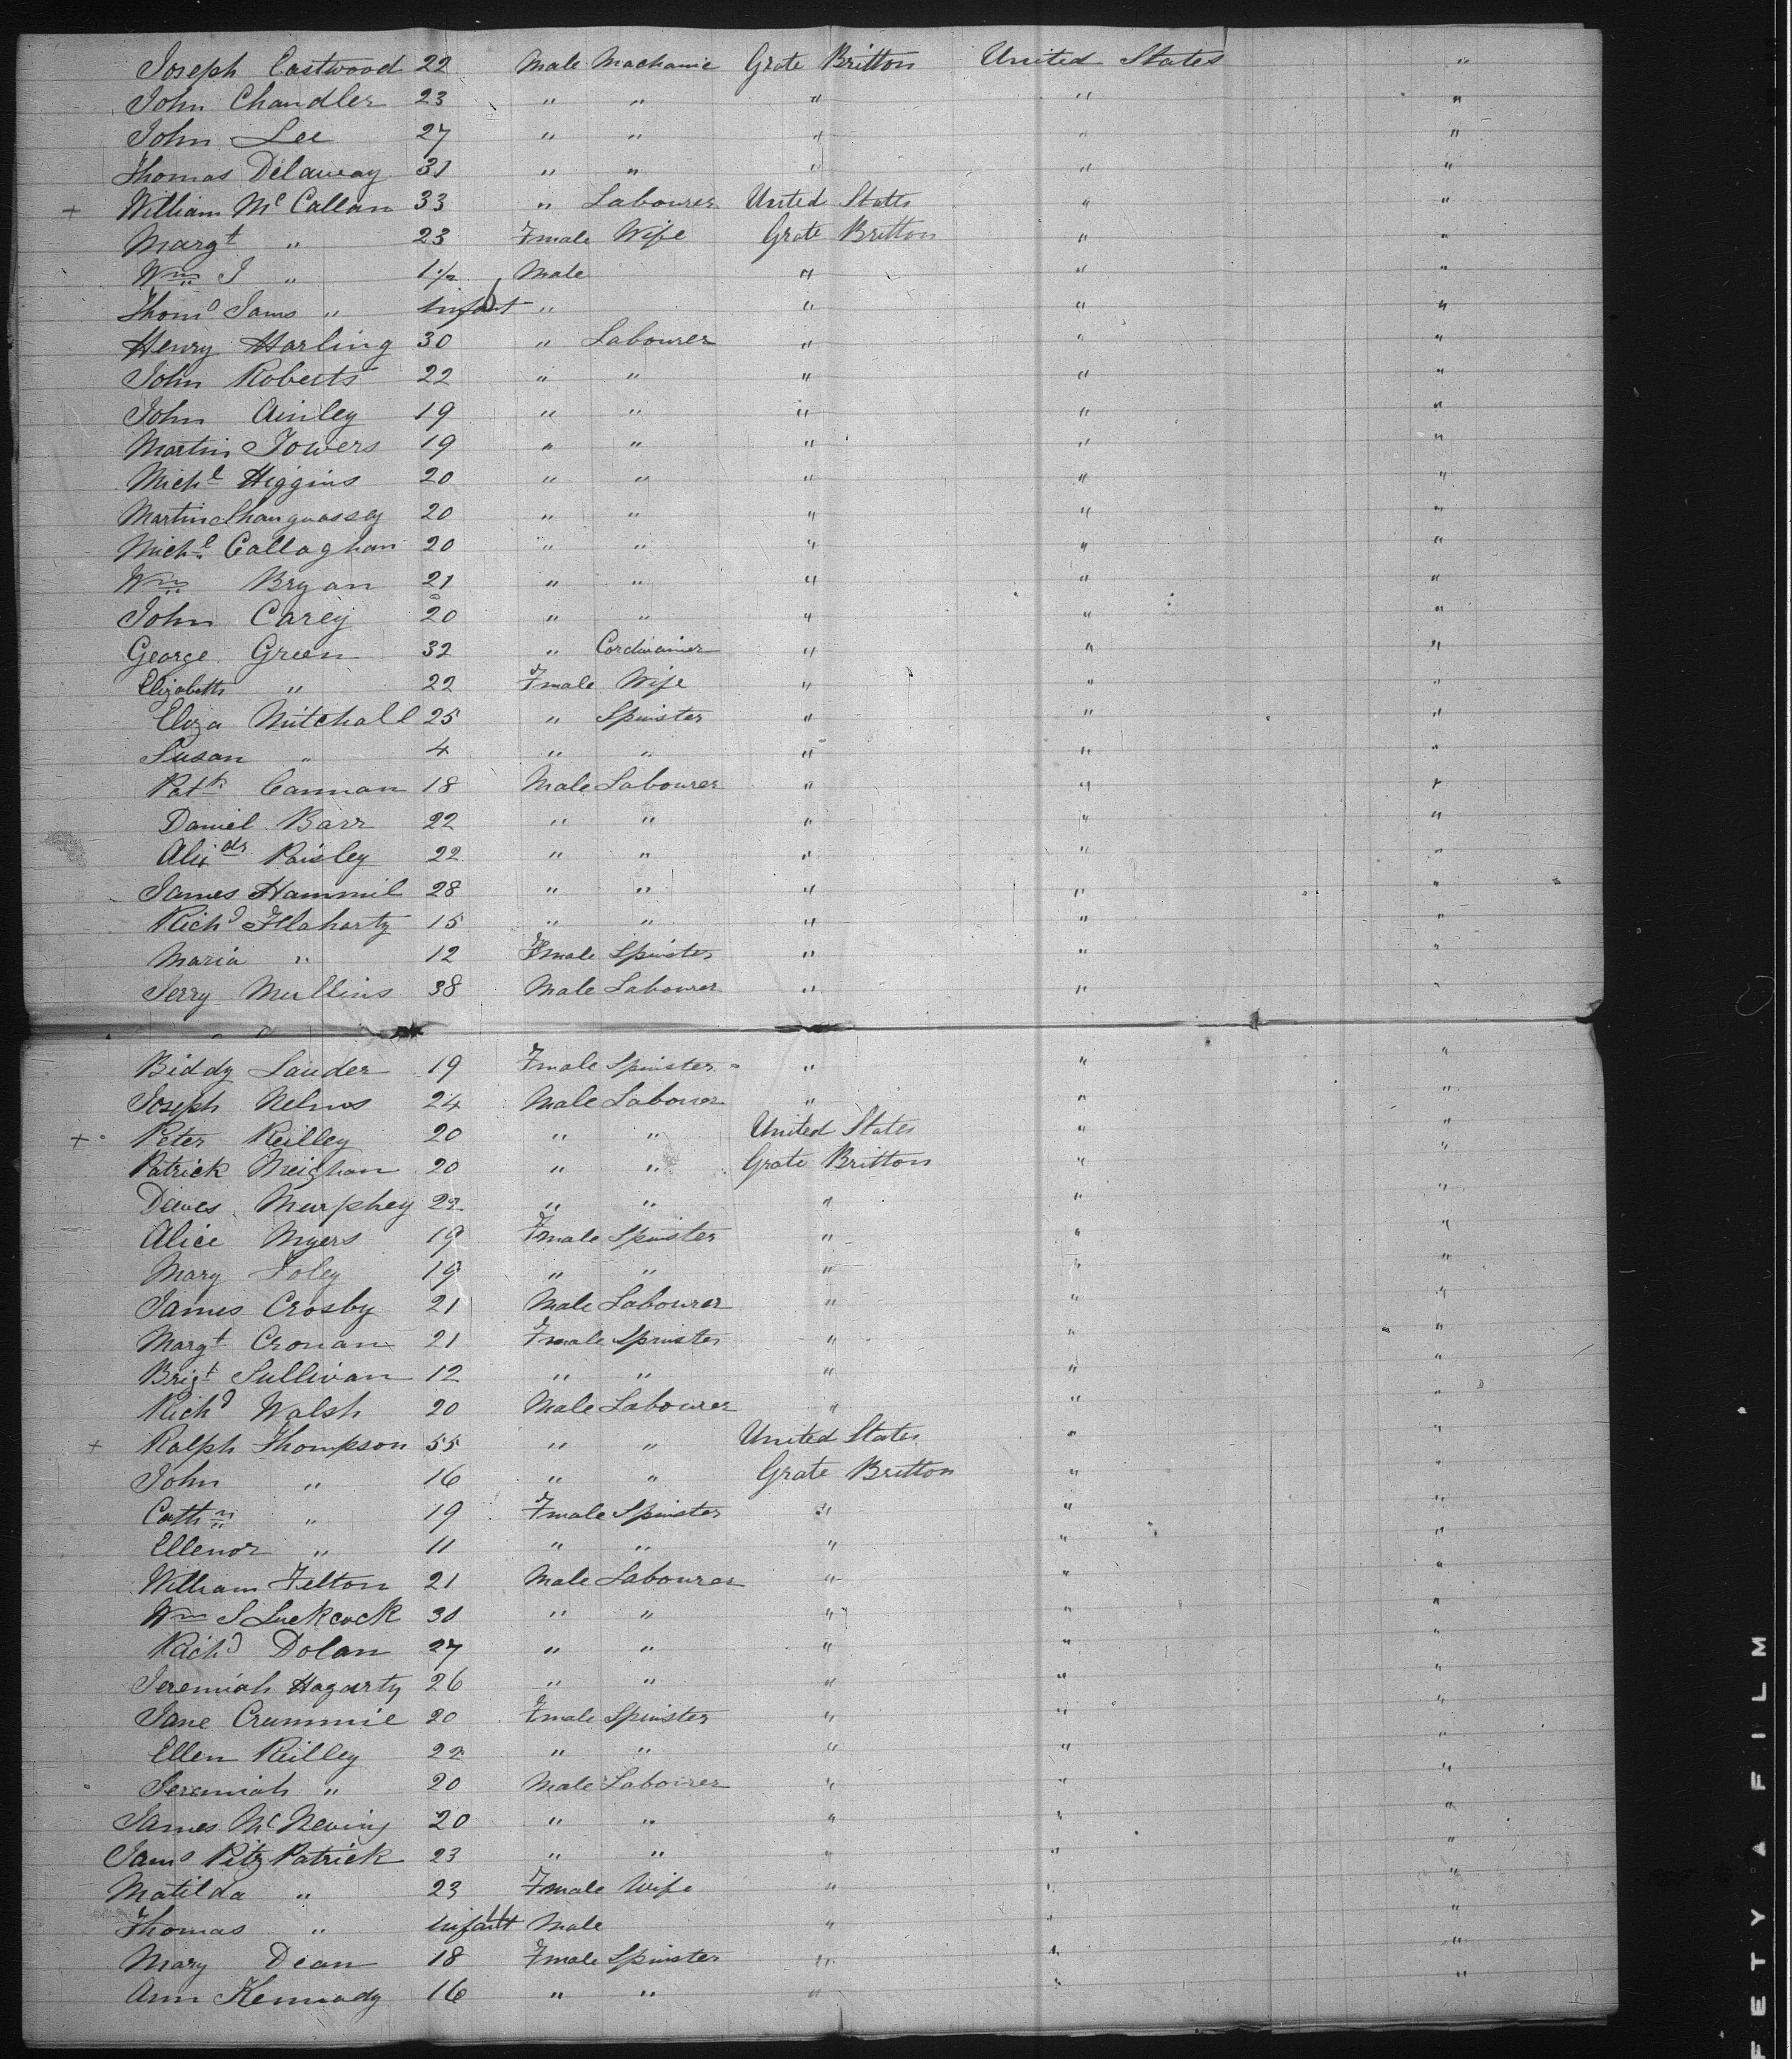 Joseph Eastwood 22 Male Machanic Grate Britton United States "
John Chandler 23 " " " " "
John Lee 27 " " " " "
Thomas Delaway 31 " " " " "
+ William Mc Callan 33 " Labourer United States " "
Margt " 23 Fmale Wife Grate Britton " "
Wm J " 1 1/2 Male " " "
Thoms Jams " infant " " " "
Henry Harling 30 " Labourer " " "
John Roberts 22 " " " " "
John Ainley 19 " " " " "
Martin Towers 19 " " " " "
Michl Higgins 20 " " " " "
Martin Shaugnassey 20 " " " " "
Michl Callaghan 20 " " " " "
Wm Bryan 21 " " " " "
John Carey 20 " " " " "
George Green 32 " Cordwainer " " "
Elizabeth " 22 Fmale Wife " " "
Eliza Mitchall 25 " Spinster " " "
Susan " 4 " " " " "
Patk Cannan 18 Male Labourer " " "
Daniel Barr 22 " " " " "
Alixdr Paisley 22 " " " " "
James Hammil 28 " " " " "
Richd Flaharty 15 " " " " "
Maria " 12 Fmale Spinster " " "
Jerry Mullins 38 Male Labourer " " "
Biddy Lauder 19 Fmale Spinster " " "
Joseph Nelmos 24 Male Labourer " " "
+ Peter Reilley 20 " " United States " "
Patrick Meighan 20 " " Grate Britton " "
Daves Murphey 22 " " " " "
Alice Myers 19 Fmale Spinster " " "
Mary Foley 19 " " " " "
James Crosby 21 Male Labourer " " "
Margt Cronan 21 Fmale Spinster " " "
Brigt Sullivan 12 " " " " "
Richd Walsh 20 Male Labourer " " "
+ Ralph Thompson 55 " " United States " "
John " 16 " " Grate Britton " "
Cathn " 19 Fmale Spinster " " "
Ellenor " 11 " " " " "
William Felton 21 Male Labourer " " "
Wm S Luckcock 30 " " " " "
Richd Dolan 27 " " " " "
Jeremiah Hagarty 26 " " " " "
Jane Crummie 20 Fmale Spinster " " "
Ellen Reilley 22 " " " " "
Jeremiah " 20 Male Labourer " " "
James Mc Neviny 20 " " " " "
Jams Fitz Patrick 23 " " " " "
Matilda " 23 Fmale Wife " " "
Thomas " infant Male " " "
Mary Dean 18 Fmale Spinster " " "
Ann Kennady 16 " " " "
FETY A FILM